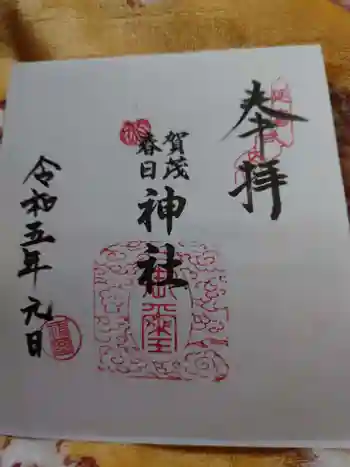 奉拝
賀茂
春日
神社
令和五年元日